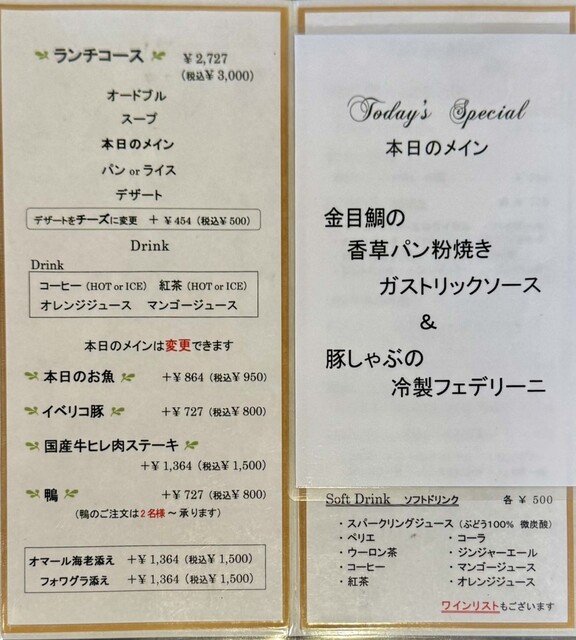 ランチコース ￥2,727
(税込￥3,000)
オードブル
スープ
本日のメイン
パン or ライス
デザート
デザートをチーズに変更 ＋￥454（税込￥500）
Drink
Drink
コーヒー (HOT or ICE) 紅茶 (HOT or ICE)
オレンジジュース マンゴージュース
本日のメインは変更できます
本日のお魚 ＋￥864（税込￥950）
イベリコ豚 ＋￥727（税込￥800）
国産牛ヒレ肉ステーキ
＋￥1,364（税込￥1,500）
鴨 ＋￥727（税込￥800）
（鴨のご注文は2名様～承ります）
オマール海老添え ＋￥1,364（税込￥1,500）
フォワグラ添え ＋￥1,364（税込￥1,500）
Today's Special
本日のメイン
金目鯛の
香草パン粉焼き
ガストリックソース
＆
豚しゃぶの
冷製フェデリーニ
Soft Drink ソフトドリンク 各￥500
・スパークリングジュース（ぶどう100% 微炭酸）
・ペリエ ・コーラ
・ウーロン茶 ・ジンジャーエール
・コーヒー ・マンゴージュース
・紅茶 ・オレンジジュース
ワインリストもございます